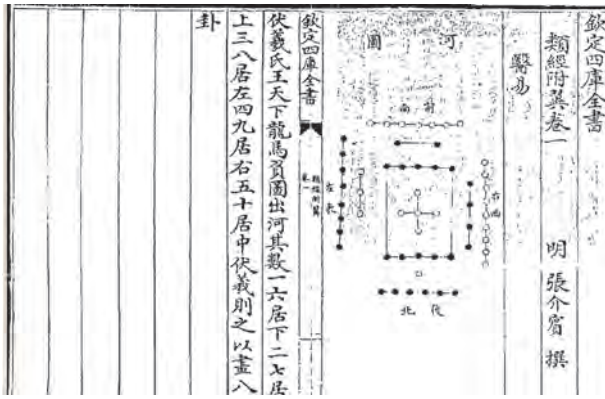 欽定四庫全書
類經附翼卷一
明 張介賓 撰
醫易
河圖
前南
右西
左東
後北
欽定四庫全書
類經附翼
卷一
伏羲氏王天下龍馬負圖出河其數一六居下二七居
上三八居左四九居右五十居中伏羲則之以畫八
卦